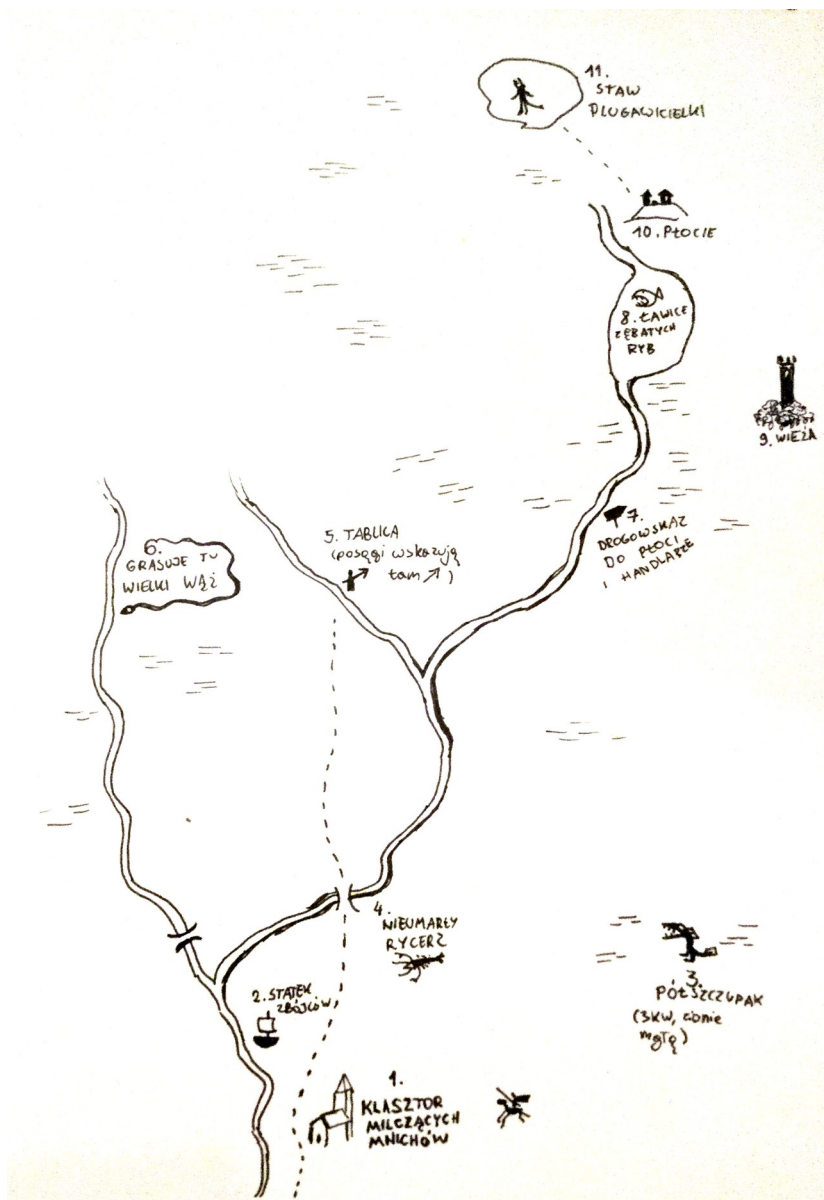 11.
STAW
PLUGAWICIELKI
10. PŁOCIE
8. ŁAWICE
ZĘBATYCH
RYB
9. WIEŻA
7.
DROGOWSKAZ
DO PŁOCI
I HANDLARZE
5. TABLICA
(posągi wskazują
tam ↗)
6.
GRASUJE TU
WIELKI WĄŻ
4.
NIEUMARŁY
RYCERZ
3.
PÓŁSZCZUPAK
(3KW, zionie
mgłą)
2. STATEK
ZBÓJCÓW
1.
KLASZTOR
MILCZĄCYCH
MNICHÓW